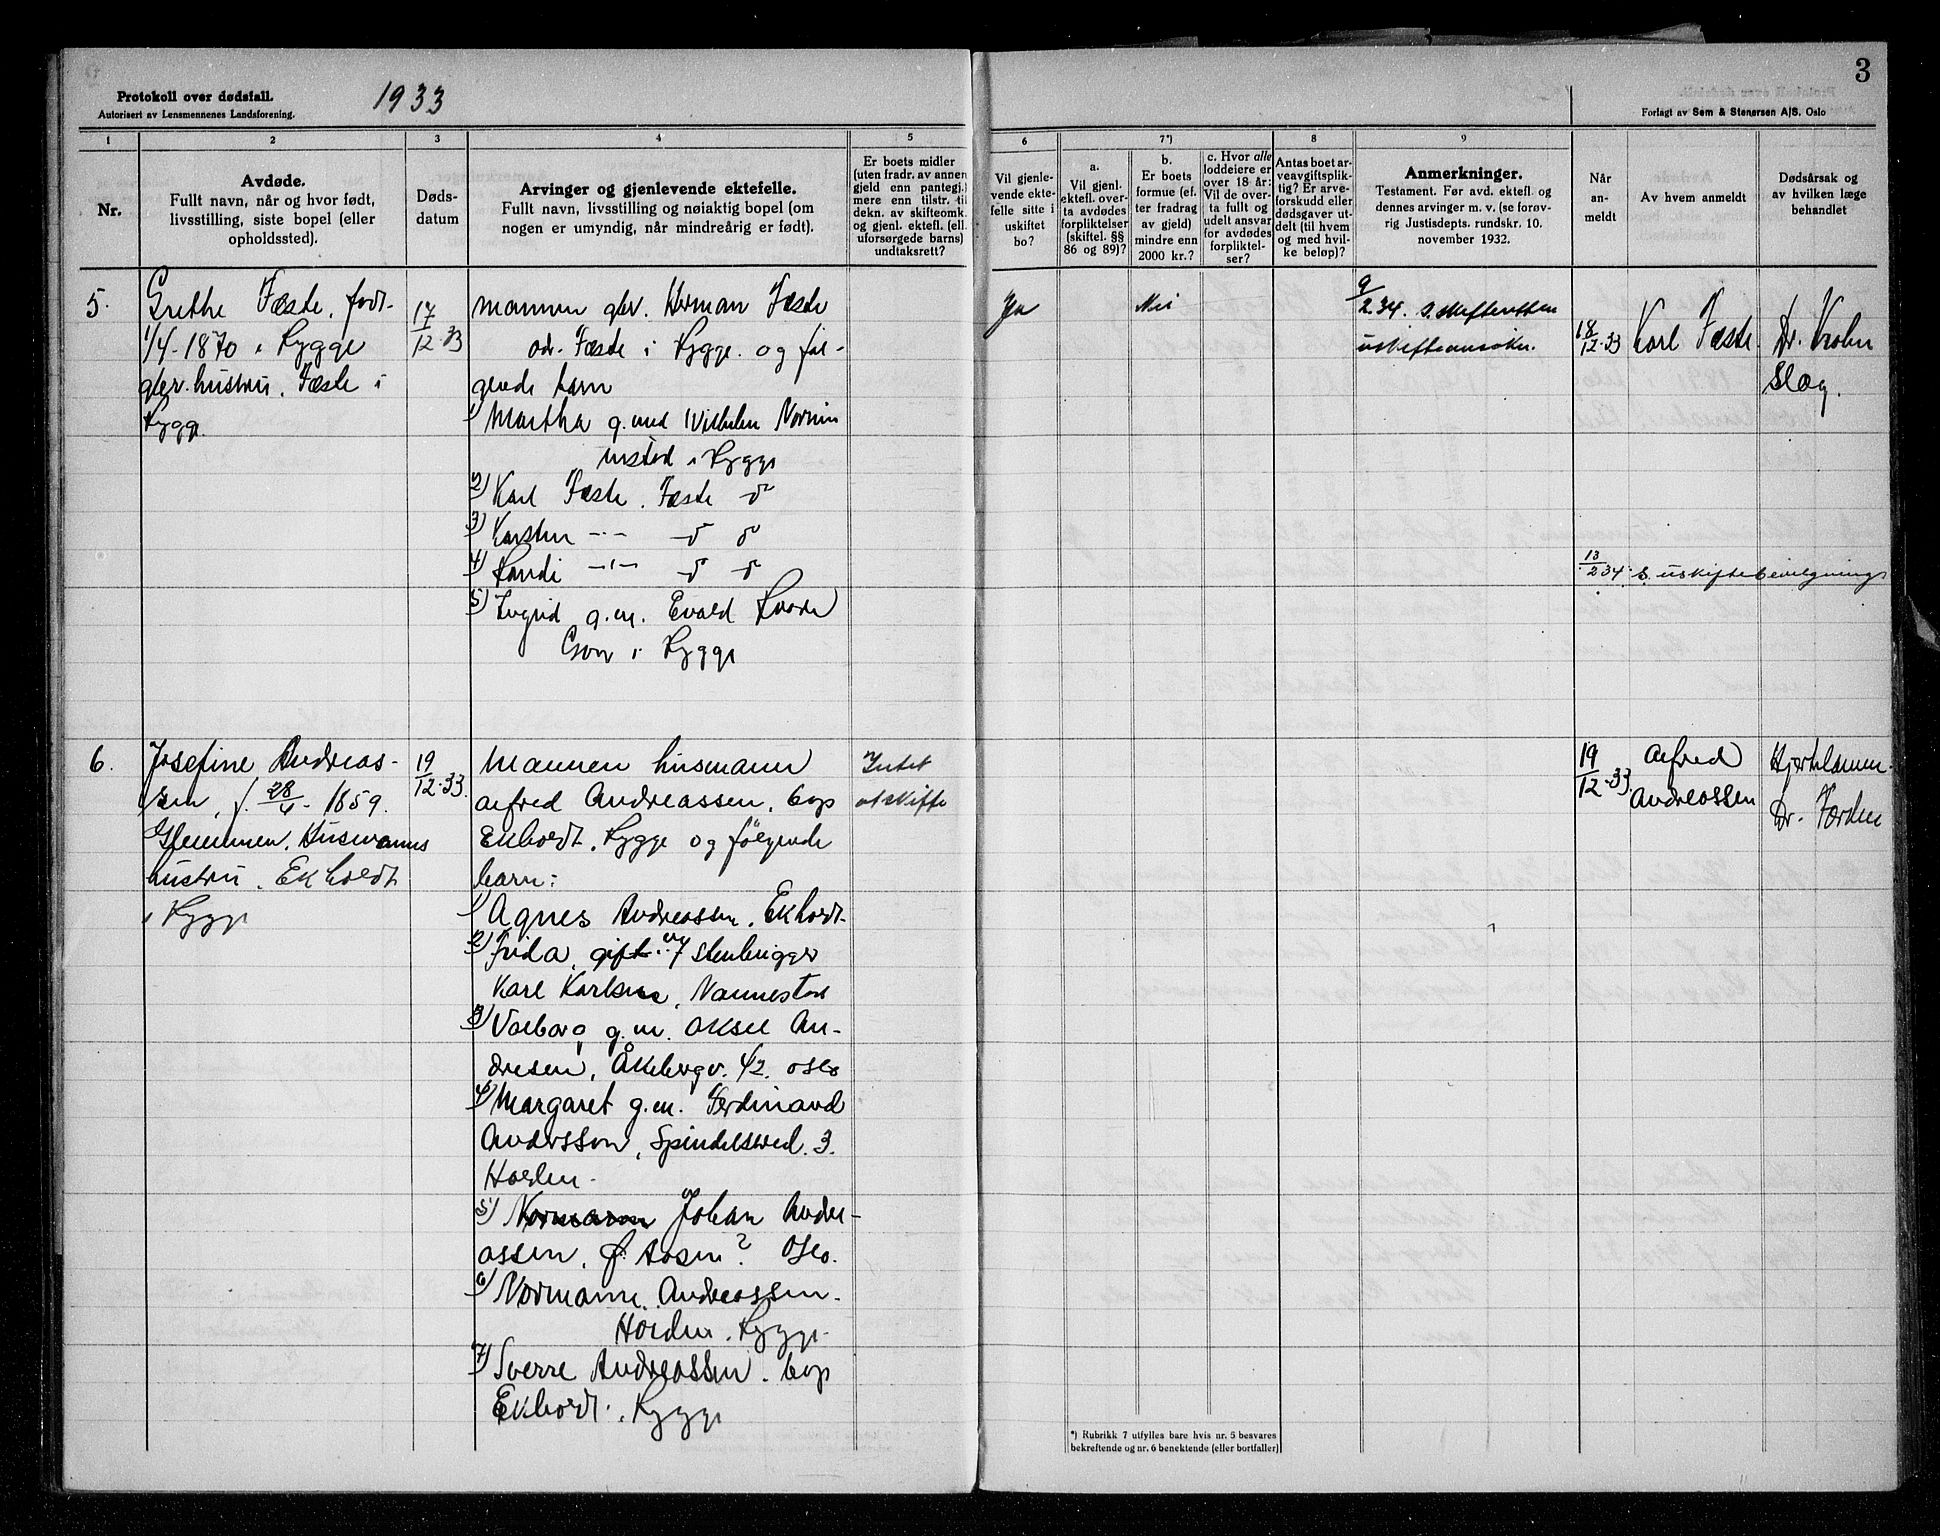 Protokoll over dødsfall.
Autorisert av Lensmennenes Landsforening.
1933
3
Forlagt av Sem & Stenersen A/S. Oslo
1 2 3 4 5 6 7*) 8 9
Nr.
Avdøde.
Fullt navn, når og hvor født,
livsstilling, siste bopel (eller
opholdssted).
Døds-
datum
Arvinger og gjenlevende ektefelle.
Fullt navn, livsstilling og nøiaktig bopel (om
nogen er umyndig, når mindreårig er født).
Er boets midler
(uten fradr. av annen
gjeld enn pantegj.)
mere enn tilstr. til
dekn. av skifteomk.
og gjenl. ektef. (ell.
uforsørgede barns)
undtaksrett?
Vil gjenle-
vende ekte-
felle sitte i
uskiftet
bo?
a.
Vil gjenl.
ektefl. over-
ta avdødes
forpliktelser
(skiftel. §§
86 og 89)?
b.
Er boets
formue (ef-
ter fradrag
av gjeld)
mindre enn
2000 kr.?
c. Hvor alle
loddeiere er
over 18 år:
Vil de over-
ta fullt og
udelt ansvar
for avdødes
forpliktel-
ser?
Antas boet ar-
veavgiftsplik-
tig? Er arve-
forskudd eller
dødsgaver ut-
delt (til hvem
og med hvil-
ke beløp)?
Anmerkninger.
Testament. Før avd. ektefl. og
dennes arvinger m. v. (se forøv-
rig Justisdepts. rundskr. 10.
november 1932.
Når
an-
meldt
Av hvem anmeldt
Dødsårsak og
av hvilken læge
behandlet
5.
Grethe Fæste, født
1/4-1870 i Rygge
gbr. hustru. Fæste i
Rygge.
17/12 33
mannen gbr. Herman Fæste
adr. Fæste i Rygge. og føl-
gende barn
1) Martha g. med Vilhelm
i Rygge
2) Karl Fæste. Fæste do
3) Karsten -"- do do
4) Randi -"- do do
5) Ingrid g.m. Evald
Gon i Rygge
Ja
Nei
9/2.34. S. skifteretten
uskifteansøkn.
18/12-33
Karl Fæste.
Dr. Krohn
Slag.
13/2 34. S. uskiftebevilgning
6.
Josefine Andreas-
sen, f. 28/4-1859.
Glemmen. Husmanns
hustru. Ekholdt
i Rygge
19/12-33.
Mannen husmann
Alfred Andreassen, bop
Ekholdt. Rygge og følgende
barn:
1) Agnes Andreassen. Ekholdt
2) Frida, gift m/ stenhugger
Karl Karlsen, Vannestad
3) Valborg g.m. Aksel An-
dresen, Åkebergv. 42. Oslo
4) Margaret g.m. Ferdinand
Andersson,
Halden.
5) Normann Johan Andre-
assen, f. Aasen? Oslo.
6) Normann. Andreassen.
Halden, Rygge.
7) Sverre Andreassen. bop
Ekholdt. i Rygge
Intet
at skifte
19/12-33.
Alfred
Andreassen
Hjertelammelse
Dr. Førden
*) Rubrikk 7 utfylles bare hvis nr. 5 besvares
bekreftende og nr. 6 benektende (eller bortfaller)